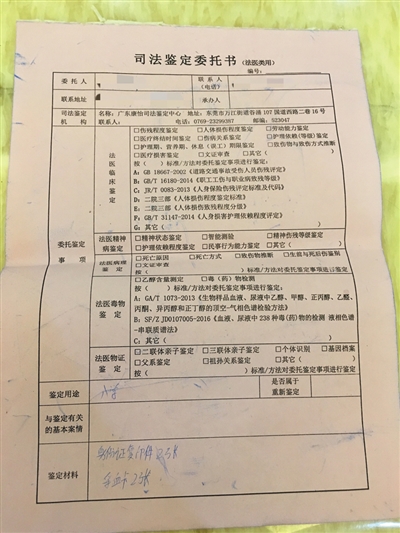 司法鉴定委托书（法医类用）
编号：
委托人
联系人（电话）
联系地址
承办人
司法鉴定机构
名称：广东康怡司法鉴定中心 地址：东莞市万江街道谷涌107国道西路二巷16号
联系人： 电话：0769-23299387 邮编：523047
委托鉴定事项
法医临床鉴定
□伤残程度鉴定 □人体损伤程度鉴定 □劳动能力鉴定
□医疗终结时间鉴定 □伤病关系鉴定 □护理依赖(等级)鉴定
□护理期、营养期、休息（误工）期限鉴定 □致伤物与致伤方式推断
□医疗损害鉴定 □文证审查 □其它（ ）
按（ ）标准/方法对委托鉴定事项进行鉴定：
A：GB 18667-2002《道路交通事故受伤人员伤残评定》
B：GB/T 16180-2014《职工工伤与职业病致残等级》
C：JR/T 0083-2013《人身保险伤残评定标准及代码》
D：二院三部《人体损伤程度鉴定标准》
E：二院三部《人体损伤致残程度分级》
F：GB/T 31147-2014《人身损害护理依赖程度评定》
G：其它（ ）
法医精神病鉴定
□精神状态鉴定 □智能测验 □精神伤残等级鉴定
□护理依赖程度鉴定 □民事行为能力鉴定 □其它（ ）
法医病理鉴定
□死亡原因 □死亡方式 □致伤物推断 □生前与死后伤鉴别
□文证审查
按（ ）标准/方法对委托鉴定事项进行鉴定
法医毒物鉴定
□乙醇含量测定 □毒（药）物检测
按（ ）标准/方法对委托鉴定事项进行鉴定：
A：GA/T 1073-2013《生物样品血液、尿液中乙醇、甲醇、正丙醇、乙醛、
丙酮、异丙醇和正丁醇的顶空-气相色谱检验方法》
B：SF/Z JD0107005-2016《血液、尿液中238种毒(药)物的检测 液相色谱
-串联质谱法》
C：其它（ ）
法医物证鉴定
□二联体亲子鉴定 □三联体亲子鉴定 □个体识别 □基因档案
□父系鉴定 □祖孙关系鉴定 □其它（ ）
按（ ）标准/方法对委托鉴定事项进行鉴定
鉴定用途
是否属于重新鉴定
与鉴定有关的基本案情
鉴定材料
身份证复印件
血卡2张